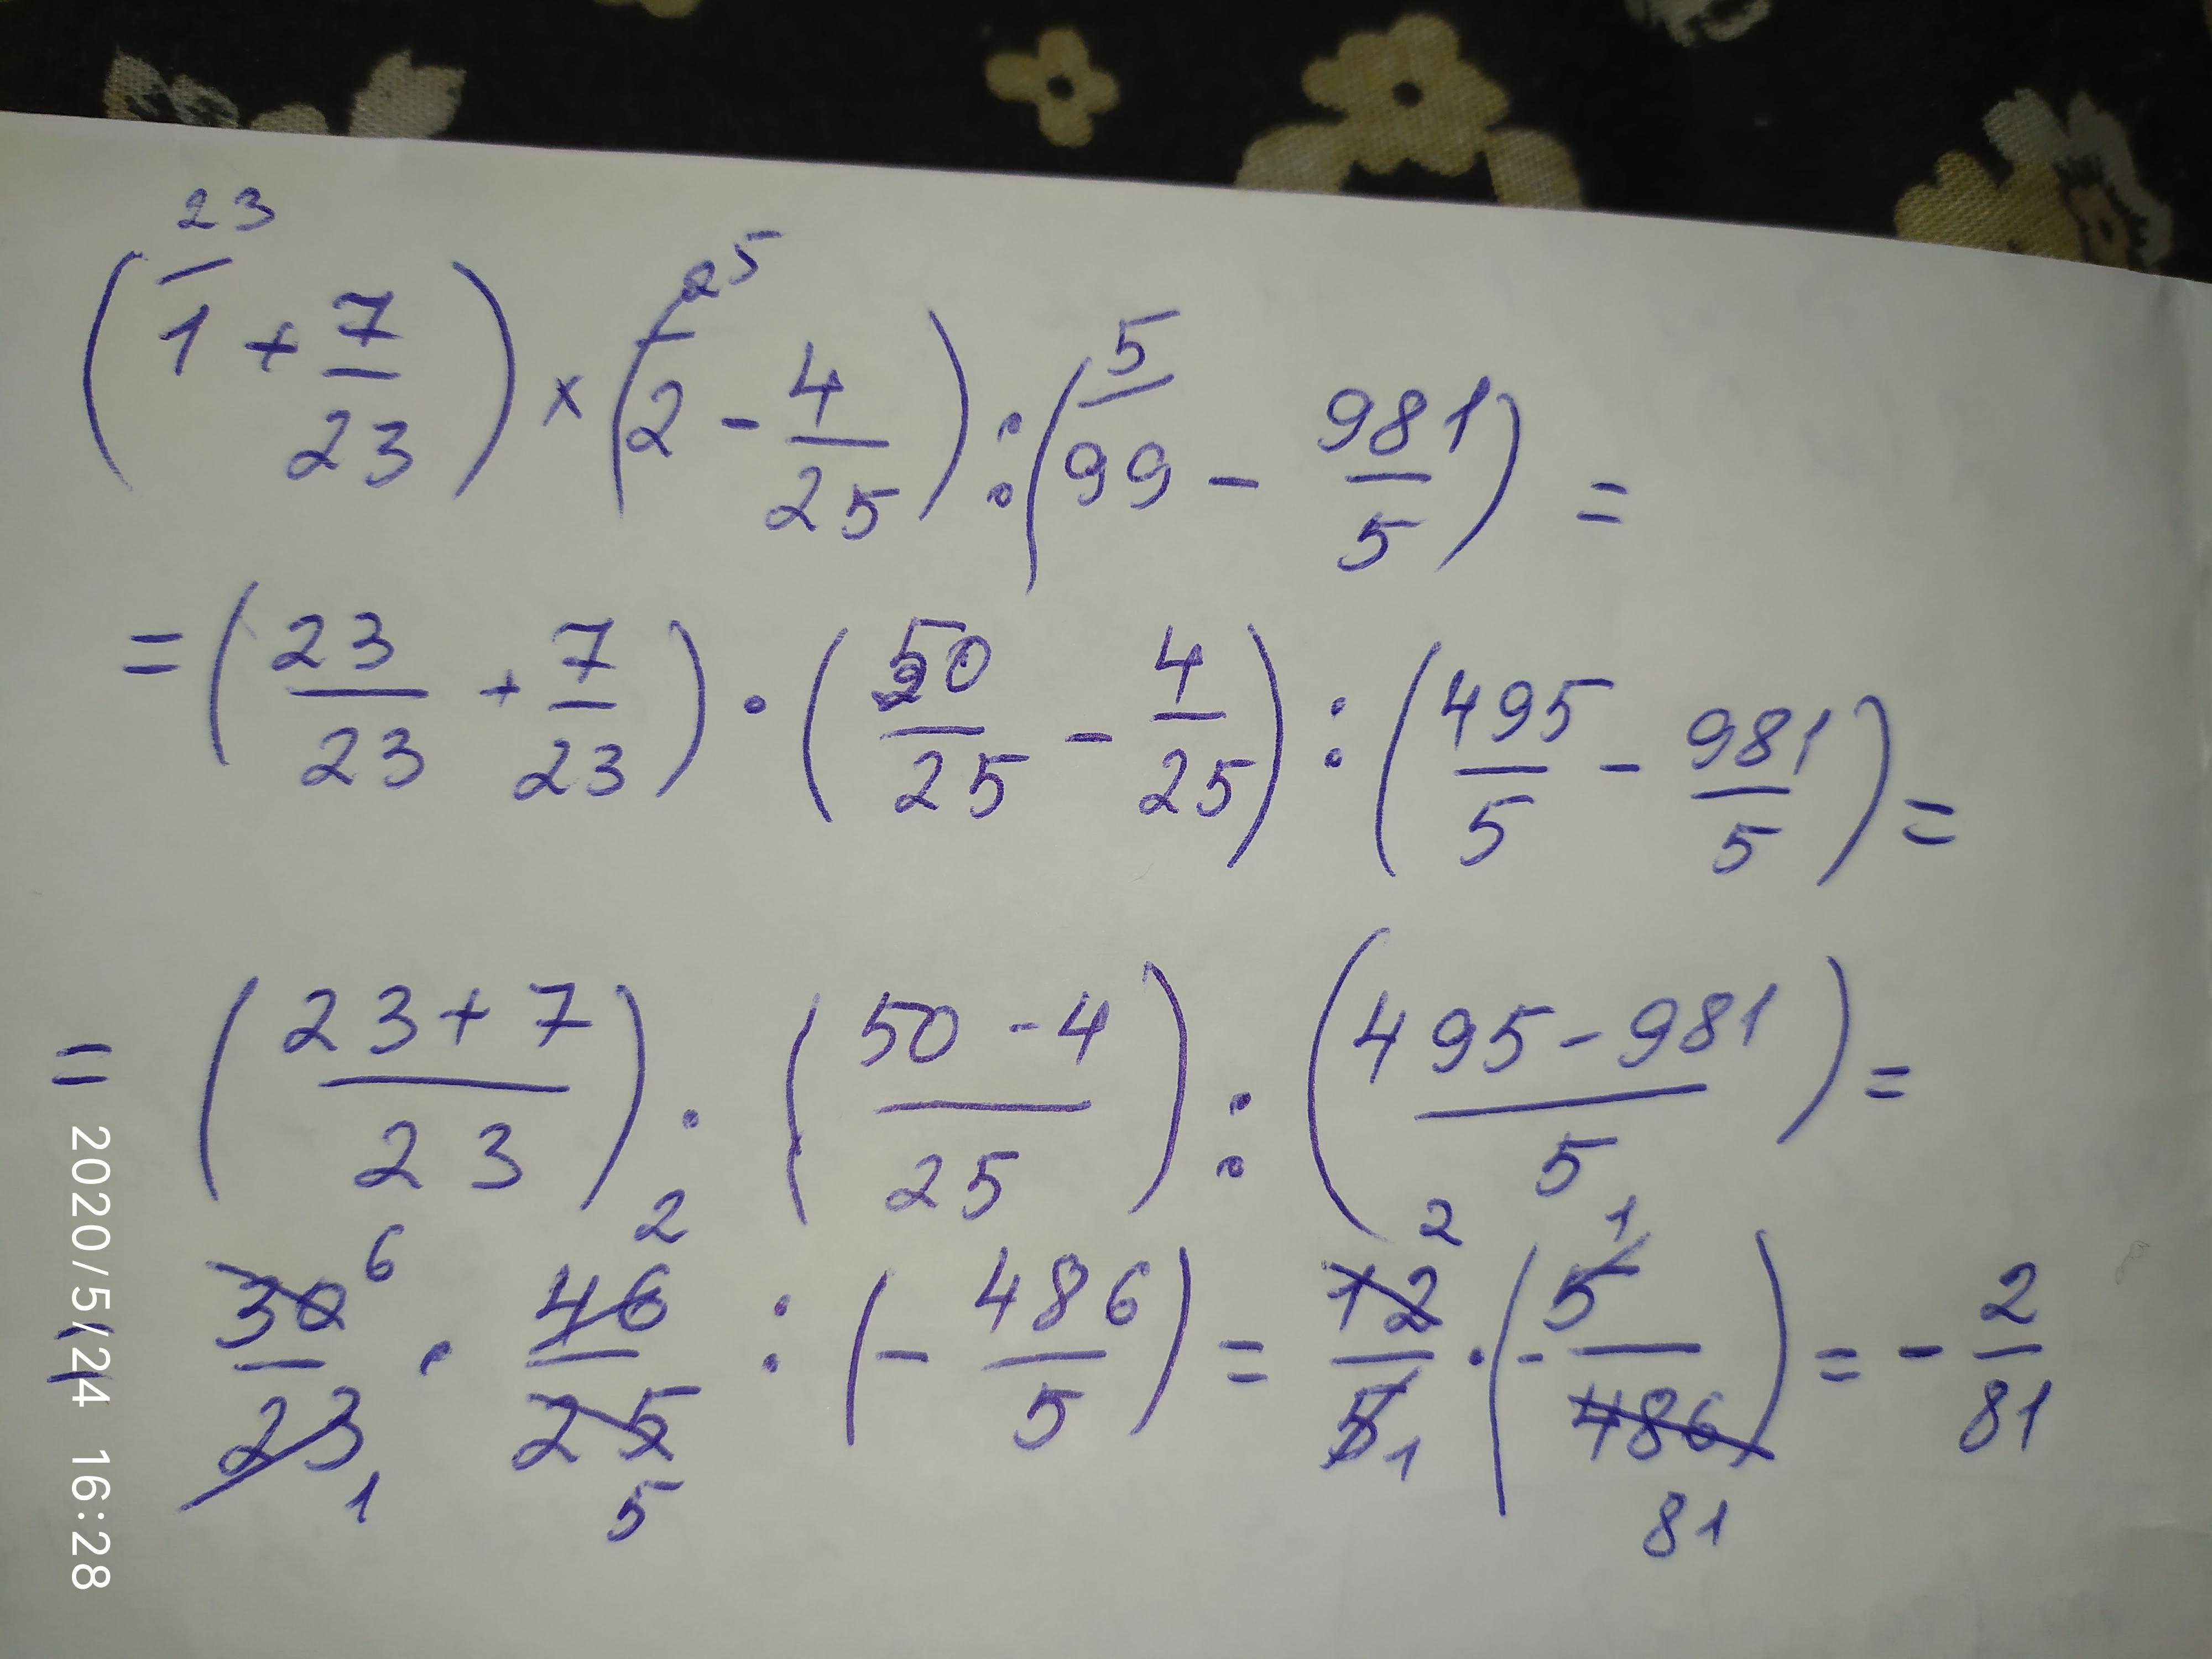 23 25 5
(1 + 7/23) × (2 - 4/25) : (99 - 981/5) =
= (23/23 + 7/23) · (50/25 - 4/25) : (495/5 - 981/5) =
= ((23+7)/23) · ((50-4)/25) : ((495-981)/5) =
6 2 2 1
= 30/23 · 46/25 : (- 486/5) = 12/5 · (- 5/486) = - 2/81
1 5 1 81
2020/5/24 16:28